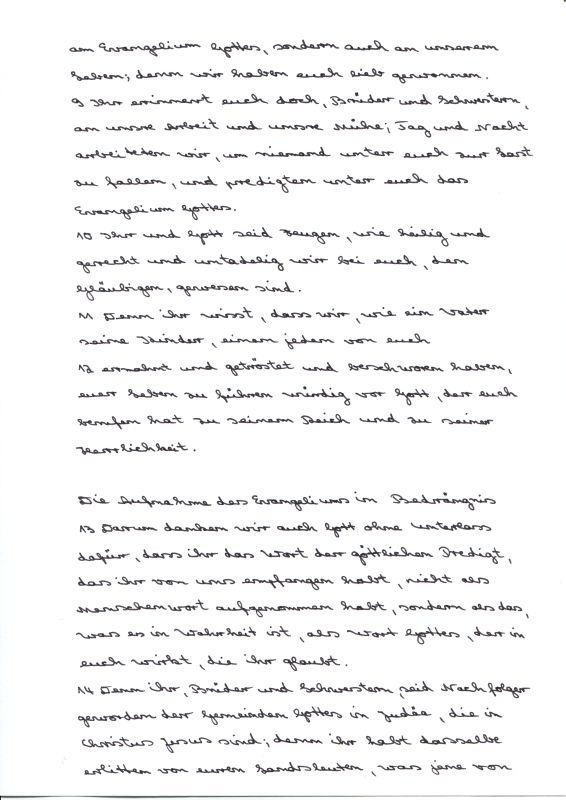 am Evangelium Gottes, sondern auch an unserem
Leben; denn wir haben euch lieb gewonnen.
9 Ihr erinnert euch doch, Brüder und Schwestern,
an unsre Arbeit und unsre Mühe; Tag und Nacht
arbeiteten wir, um niemand unter euch zur Last
zu fallen, und predigten unter euch das
Evangelium Gottes.
10 Ihr und Gott seid Zeugen, wie heilig und
gerecht und untadelig wir bei euch, den
Gläubigen, gewesen sind.
11 Denn ihr wisst, dass wir, wie ein Vater
seine Kinder, einen jeden von euch
12 ermahnt und getröstet und beschworen haben,
euer Leben zu führen würdig vor Gott, der euch
berufen hat zu seinem Reich und zu seiner
Herrlichkeit.
Die Aufnahme des Evangeliums in Bedrängnis
13 Darum danken wir auch Gott ohne Unterlass
dafür, dass ihr das Wort der göttlichen Predigt,
das ihr von uns empfangen habt, nicht als
Menschenwort aufgenommen habt, sondern als das,
was es in Wahrheit ist, als Wort Gottes, der in
euch wirkt, die ihr glaubt.
14 Denn ihr, Brüder und Schwestern, seid Nachfolger
geworden der Gemeinden Gottes in Judäa, die in
Christus Jesus sind; denn ihr habt dasselbe
erlitten von euren Landsleuten, was jene von